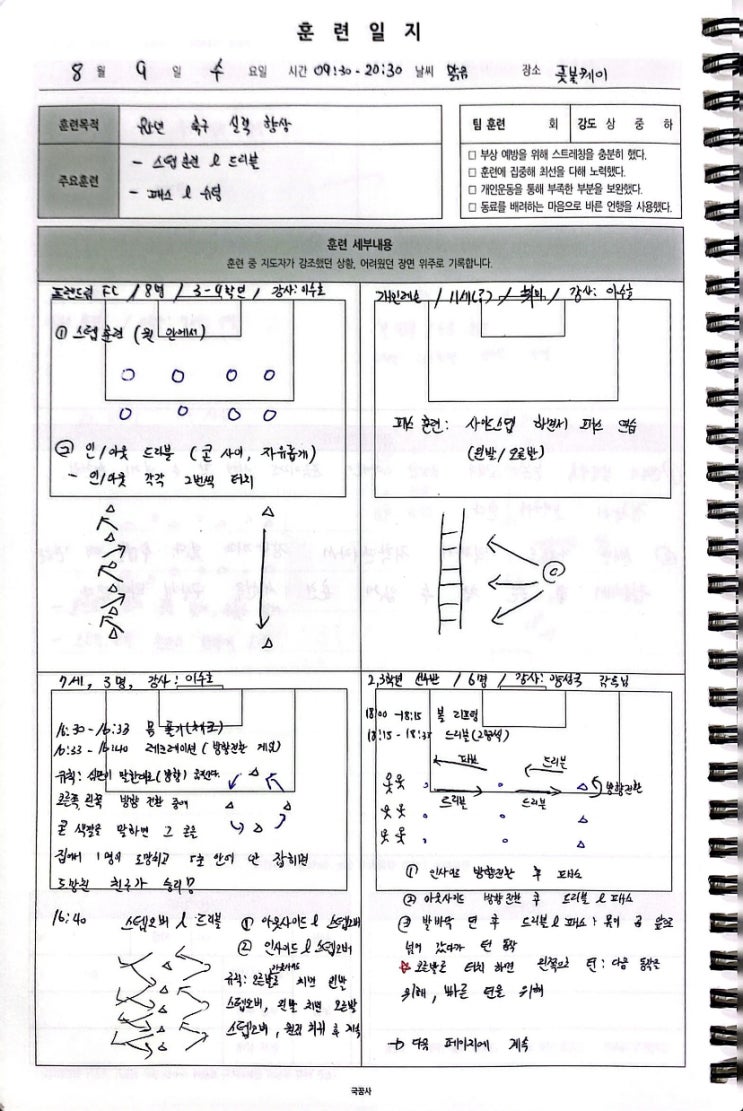 훈 련 일 지
8 월 9 일 수 요일 시간 09:30 - 20:30 날씨 맑음 장소 풋볼케이
훈련목적 유소년 축구 실력 향상
주요훈련 - 스텝 훈련 & 드리블
- 패스 & 슈팅
팀 훈련 회 강도 상 중 하
□ 부상 예방을 위해 스트레칭을 충분히 했다.
□ 훈련에 집중해 최선을 다해 노력했다.
□ 개인운동을 통해 부족한 부분을 보완했다.
□ 동료를 배려하는 마음으로 바른 언행을 사용했다.
훈련 세부내용
훈련 중 지도자가 강조했던 상황, 어려웠던 장면 위주로 기록합니다.
프렌드림 FC / 8명 / 3-4학년 / 강사: 이수호
① 스텝 훈련 (원 안에서)
② 인/아웃 드리블 (콘 사이, 자유롭게)
- 인/아웃 각각 2번씩 터치
개인레슨 / 강사: 이수호
패스 훈련: 사이드스텝 하면서 패스 연습
(왼발/오른발)
7세, 3명, 강사: 이수호
16:30 - 16:33 몸 풀기 (체조)
16:33 - 16:40 레크레이션 (방향전환 게임)
규칙: 심판이 말한대로 (방향) 움직인다.
오른쪽, 왼쪽 방향 전환 중에
콘 색깔을 말하면 그 콘을
집에서 1명이 도망치고 5초 안에 안 잡히면
도망친 친구가 승리!
16:40 스텝오버 & 드리블 ① 아웃사이드 & 스텝오버
② 인사이드 & 스텝오버
규칙: 오른발로 치면 왼발
스텝오버, 왼발 치면 오른발
스텝오버, 원위치 후 계속
2,3학년 선수반 / 6명 / 강사: 양성국 감독님
18:00 - 18:15 볼 리프팅
18:15 - 18:35 드리블 (2명씩)
패스 드리블
방향전환
드리블 드리블
① 인사이드 방향전환 후 패스
② 아웃사이드 방향전환 후 드리블 & 패스
③ 발바닥 턴 후 드리블 & 패스: 몸이 공 앞으로
넘어 갔다가 턴 동작
☆ 오른발로 터치 하면 왼쪽으로 턴: 다음 동작을
위해, 빠른 턴을 위해
→ 다음 페이지에 계속
국공사